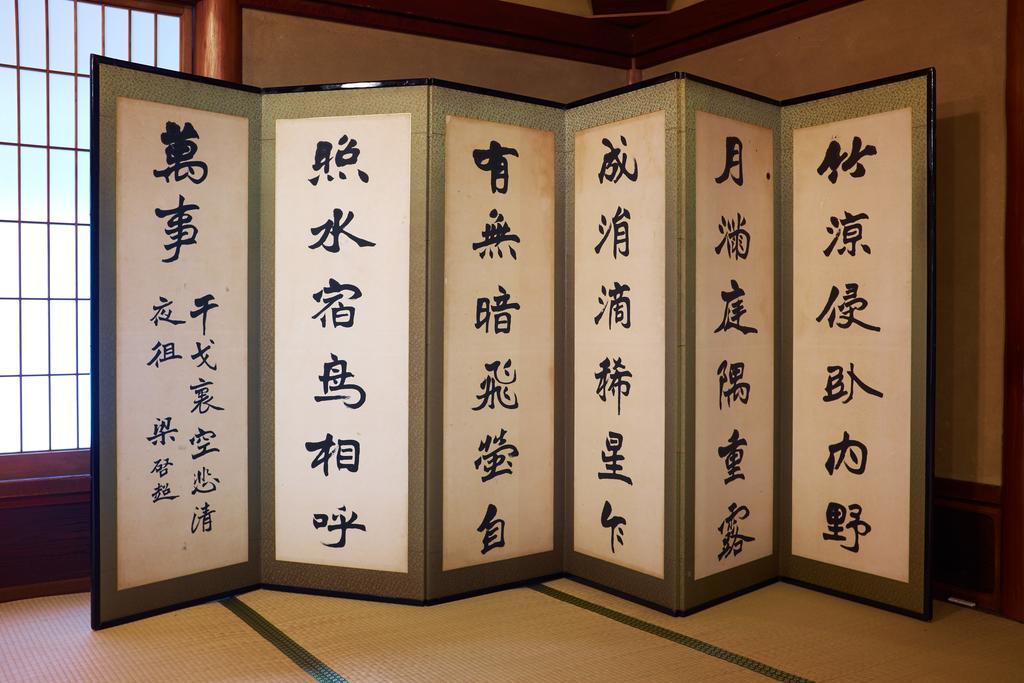 竹涼侵卧内野
月滿庭隅重露
成涓滴稀星乍
有無暗飛螢自
照水宿鸟相呼
萬事
干戈裏空悲清
夜徂
梁啓超